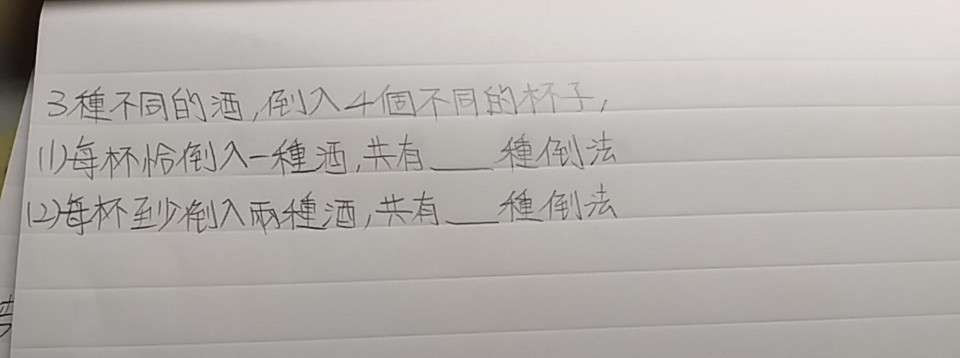 3種不同的酒,倒入4個不同的杯子,
(1)每杯恰倒入一種酒,共有___種倒法
(2)每杯至少倒入兩種酒,共有___種倒法